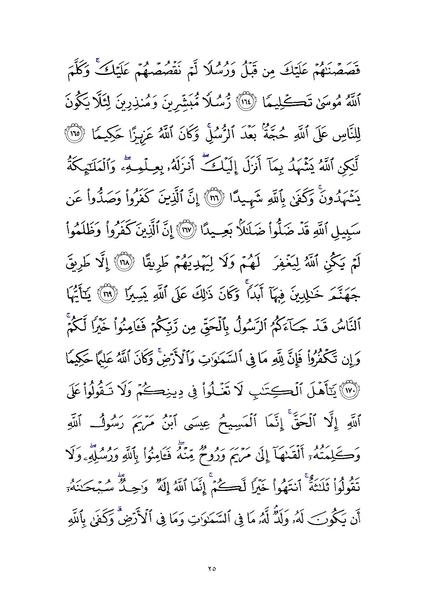 قَصَصْنَٰهُمْ عَلَيْكَ مِن قَبْلُ وَرُسُلًا لَّمْ نَقْصُصْهُمْ عَلَيْكَ ۚ وَكَلَّمَ
ٱللَّهُ مُوسَىٰ تَكْلِيمًا ١٦٤ رُّسُلًا مُّبَشِّرِينَ وَمُنذِرِينَ لِئَلَّا يَكُونَ
لِلنَّاسِ عَلَى ٱللَّهِ حُجَّةٌۢ بَعْدَ ٱلرُّسُلِ ۚ وَكَانَ ٱللَّهُ عَزِيزًا حَكِيمًا ١٦٥
لَّٰكِنِ ٱللَّهُ يَشْهَدُ بِمَآ أَنزَلَ إِلَيْكَ ۖ أَنزَلَهُۥ بِعِلْمِهِۦ ۖ وَٱلْمَلَٰٓئِكَةُ
يَشْهَدُونَ ۚ وَكَفَىٰ بِٱللَّهِ شَهِيدًا ١٦٦ إِنَّ ٱلَّذِينَ كَفَرُوا۟ وَصَدُّوا۟ عَن
سَبِيلِ ٱللَّهِ قَدْ ضَلُّوا۟ ضَلَٰلًۢا بَعِيدًا ١٦٧ إِنَّ ٱلَّذِينَ كَفَرُوا۟ وَظَلَمُوا۟
لَمْ يَكُنِ ٱللَّهُ لِيَغْفِرَ لَهُمْ وَلَا لِيَهْدِيَهُمْ طَرِيقًا ١٦٨ إِلَّا طَرِيقَ
جَهَنَّمَ خَٰلِدِينَ فِيهَآ أَبَدًا ۚ وَكَانَ ذَٰلِكَ عَلَى ٱللَّهِ يَسِيرًا ١٦٩ يَٰٓأَيُّهَا
ٱلنَّاسُ قَدْ جَآءَكُمُ ٱلرَّسُولُ بِٱلْحَقِّ مِن رَّبِّكُمْ فَـَٔامِنُوا۟ خَيْرًا لَّكُمْ ۚ
وَإِن تَكْفُرُوا۟ فَإِنَّ لِلَّهِ مَا فِى ٱلسَّمَٰوَٰتِ وَٱلْأَرْضِ ۚ وَكَانَ ٱللَّهُ عَلِيمًا حَكِيمًا
١٧٠ يَٰٓأَهْلَ ٱلْكِتَٰبِ لَا تَغْلُوا۟ فِى دِينِكُمْ وَلَا تَقُولُوا۟ عَلَى
ٱللَّهِ إِلَّا ٱلْحَقَّ ۚ إِنَّمَا ٱلْمَسِيحُ عِيسَى ٱبْنُ مَرْيَمَ رَسُولُ ٱللَّهِ
وَكَلِمَتُهُۥٓ أَلْقَىٰهَآ إِلَىٰ مَرْيَمَ وَرُوحٌ مِّنْهُ ۖ فَـَٔامِنُوا۟ بِٱللَّهِ وَرُسُلِهِۦ ۖ وَلَا
تَقُولُوا۟ ثَلَٰثَةٌ ۚ ٱنتَهُوا۟ خَيْرًا لَّكُمْ ۚ إِنَّمَا ٱللَّهُ إِلَٰهٌ وَٰحِدٌ ۖ سُبْحَٰنَهُۥٓ
أَن يَكُونَ لَهُۥ وَلَدٌ ۘ لَّهُۥ مَا فِى ٱلسَّمَٰوَٰتِ وَمَا فِى ٱلْأَرْضِ ۗ وَكَفَىٰ بِٱللَّهِ
٢٥